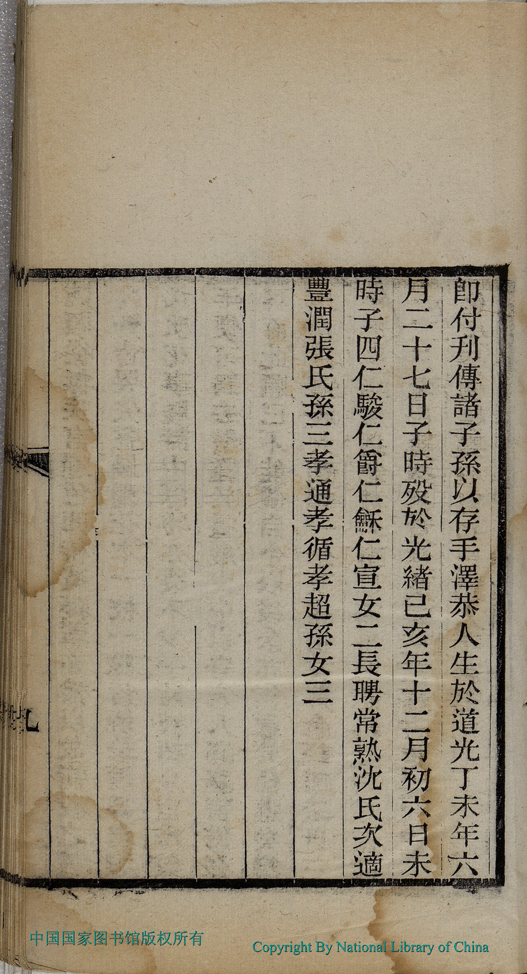 卽付刋傳諸子孫以存手澤恭人生於道光丁未年六
月二十七日子時殁於光緒己亥年十二月初六日未
時子四仁駿仁爵仁龢仁宣女二長聘常熟沈氏次適
豐潤張氏孫三孝通孝循孝超孫女三
中国国家图书馆版权所有
Copyright By National Library of China